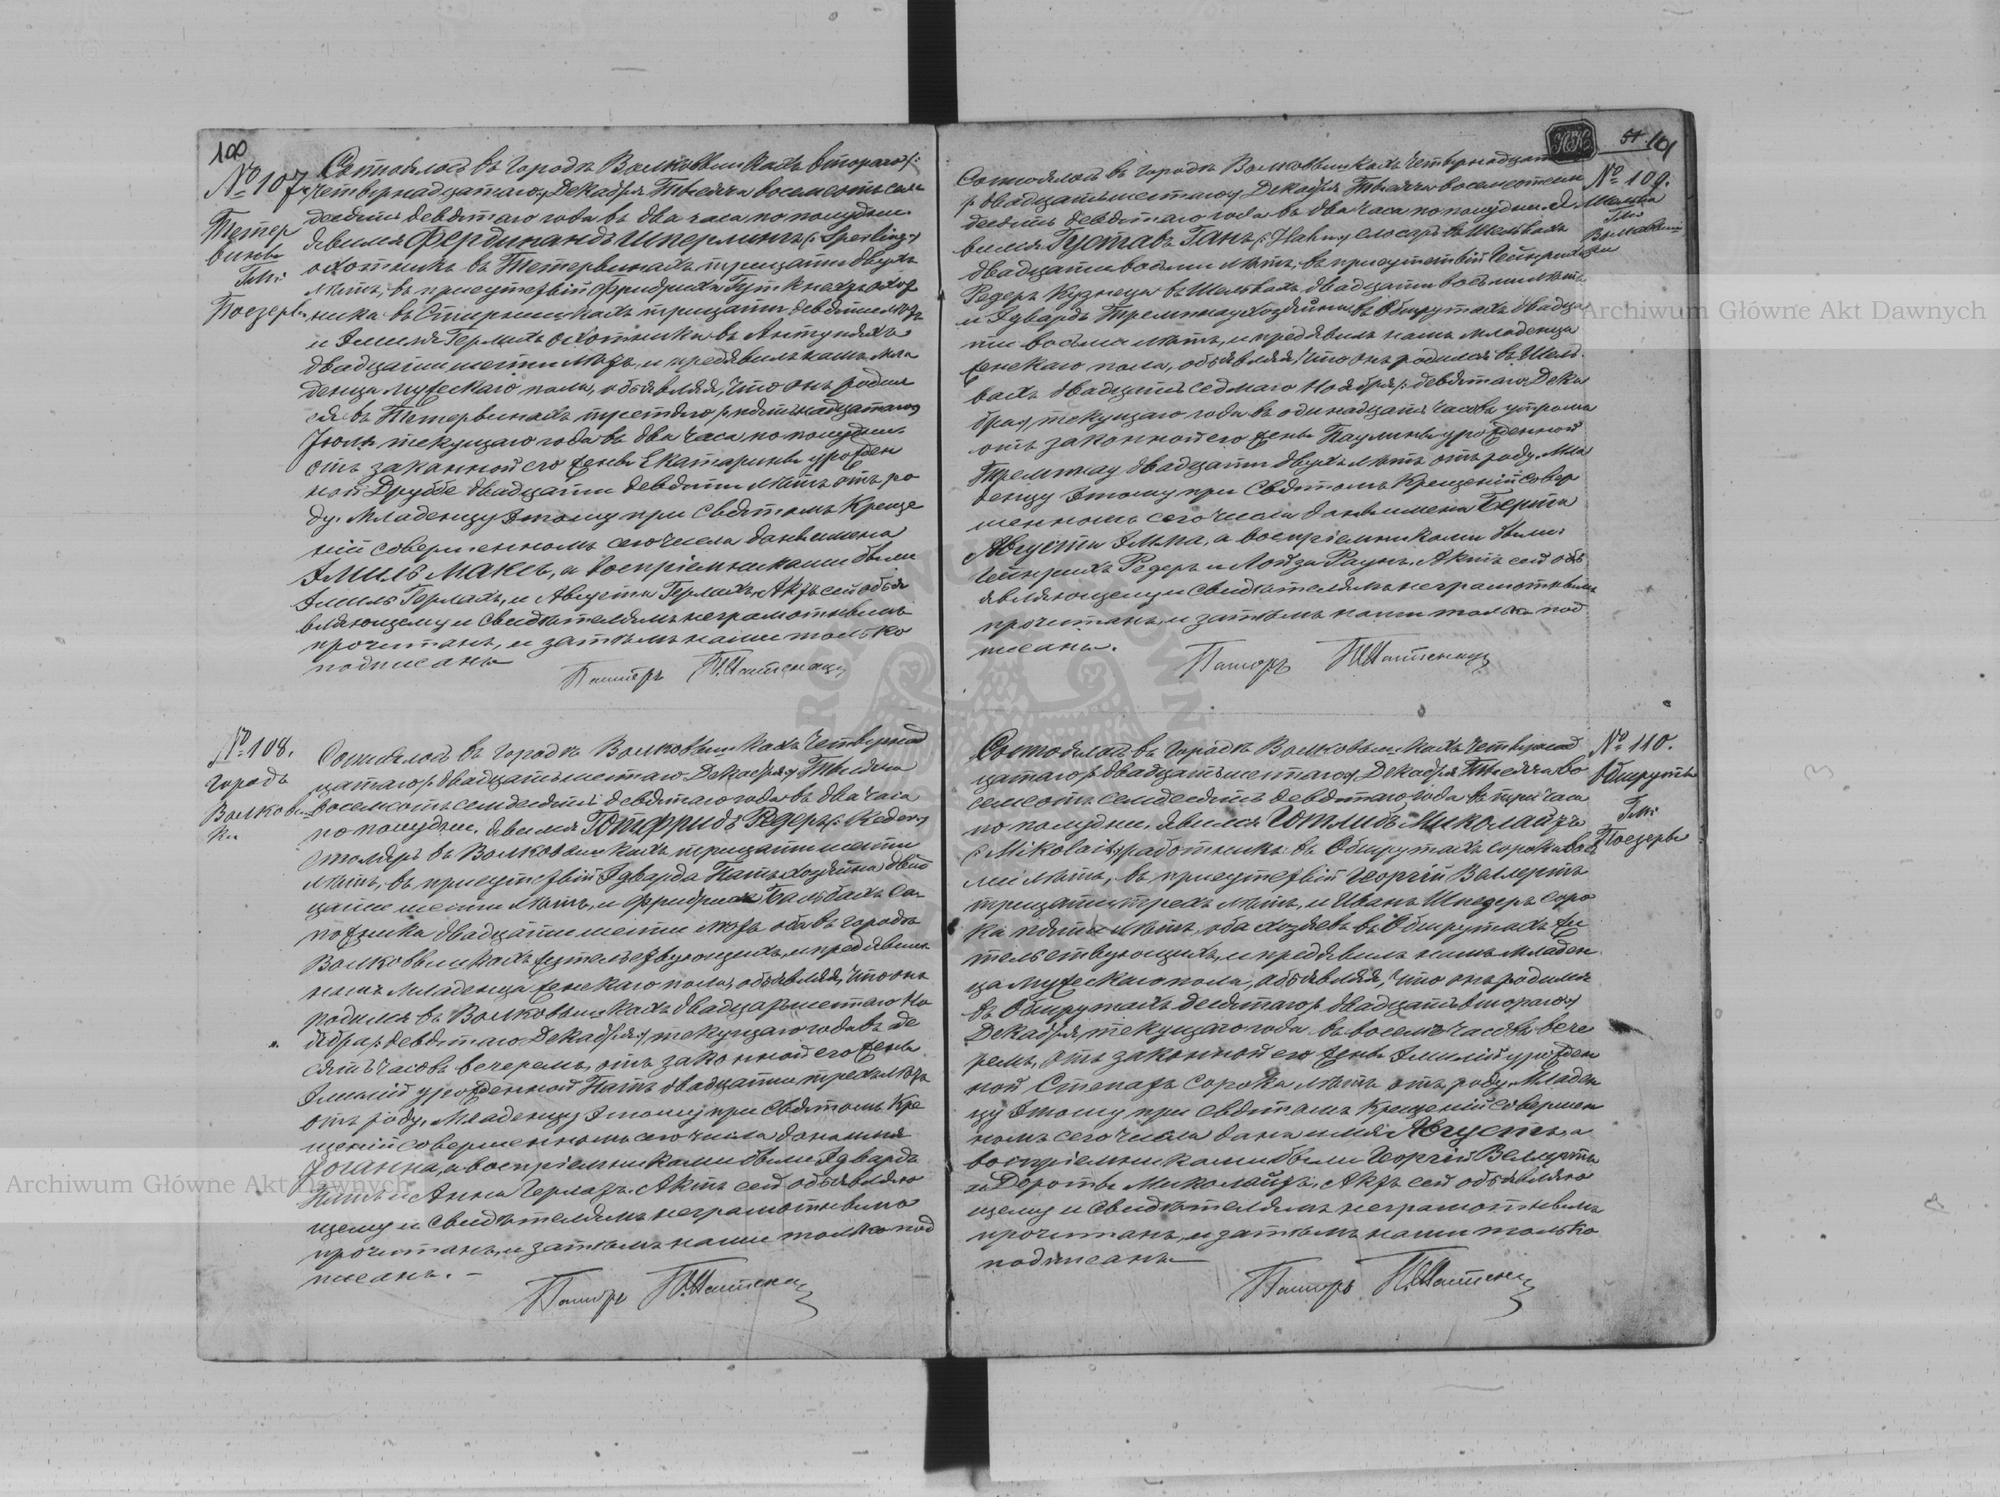 100
№ 107.
Тетер
вины
Гм:
Поезеры
Состоялось въ городѣ Волковышкахъ втораго (:
четырнадцатаго) Декабря Тысяча восемьсотъ семь
десятъ девятаго года въ два часа по полудни
явился Фердинандъ Шперлингъ (: Sperling:)
охотникъ въ Тетервинахъ тридцати двухъ
лѣтъ, въ присутствіи Фридриха
ника въ тридцати девяти лѣтъ
и Эмиля Герлахъ охотника въ Антупяхъ
двадцати шести лѣтъ, и предъявилъ намъ мла
денца мужескаго пола, объявляя, что онъ родил
ся въ Тетервинахъ третяго (: пятьнадцатаго)
Іюля текущаго года въ два часа по полудни
отъ законной его жены Екатарины урожден
ной Друббе двадцати девяти лѣтъ отъ ро
ду. Младенцу этому при Святомъ Креще
ніи совершенномъ сего числа даны имена
Эмиль Максъ, а воспріемниками были
Эмиль Герлахъ, и Августа Герлахъ. Актъ сей объя
вляющему и свидѣтелямъ неграмотнымъ
прочитанъ, и затѣмъ нами только
подписанъ
Пасторъ
№ 108.
городъ
Волковыш
ки
Состоялось въ городѣ Волковышкахъ четырнад
цатаго (: двадцать шестаго Декабря:) Тысяча
восемьсотъ семдесятъ девятаго года въ два часа
по полудни, явился Готфридъ Редеръ (: Reder:)
столяръ въ Волковышкахъ тридцати шести
лѣтъ, въ присутствіи Эдварда Патъ хозяина двад
цати шести лѣтъ, и Фридриха Гальбахъ са
пожника двадцати шести лѣтъ оба въ городѣ
Волковышкахъ жительствующихъ, и предъявилъ
намъ младенца женскаго пола, объявляя, что онъ
родился въ Волковышкахъ двадцать шестаго Но
ября (: девятаго Декабря:) текущаго года въ де
сять часовъ вечеромъ, отъ законной его жены
Эмиліи урожденной Патъ двадцати трехъ лѣтъ
отъ роду. Младенцу этому при Святомъ Кре
щеніи совершенномъ сего числа дано имя
Іоганна, а воспріемниками были Эдвардъ
Патъ и Анна Герлахъ. Актъ сей объявляю
щему и свидѣтелямъ неграмотнымъ
прочитанъ, и затѣмъ нами только под
писанъ. —
Пасторъ
101
№ 109.
Шельвы
Гм:
Состоялось въ городѣ Волковышкахъ четырнадцат
(: двадцать шестаго) Декабря Тысяча восемьсотъ семь
десятъ девятаго года въ два часа по полудни. Я
вился Густавъ Ганъ (: Hahn:) слесаръ въ Шельвахъ
двадцати восьми лѣтъ, въ присутствіи Гейнриха
Редеръ кузнеца въ Шельвахъ двадцати восьми лѣтъ
и Эдварда Тремпнау хозяина въ Обшрутахъ двадца
ти восьми лѣтъ, и предъявилъ намъ младенца
женскаго пола, объявляя, что онъ родился въ Шель
вахъ двадцать седмаго Ноября (: девятаго Дека
бря:) текущаго года въ одинадцать часовъ утромъ
отъ законной его жены Паулины урожденной
Тремпнау двадцати двухъ лѣтъ отъ роду. Мла
денцу этому при Святомъ Крещеніи совер
шенномъ сего числа даны имена Берта
Августа Эльма, а воспріемниками были
Гейнрихъ Редеръ и Луиза Раунъ. Актъ сей объ
являющему и свидѣтелямъ неграмотнымъ
прочитанъ, и затѣмъ нами только под
писанъ.
Пасторъ
№ 110.
Обшруты
Гм:
Поезеры
Состоялось въ городѣ Волковышкахъ четырнад
цатаго (: двадцать шестаго:) Декабря Тысяча во
семьсотъ семдесятъ девятаго года въ три часа
по полудни, явился Готлибъ Миколайтъ
(: Mikolait:) работникъ въ Обшрутахъ сорока вось
ми лѣтъ, въ присутствіи Георгій Валлертъ
тридцати трехъ лѣтъ, и Иванъ Шнедеръ соро
ка пяти лѣтъ, оба хозяевъ въ Обшрутахъ жи
тельствующихъ, и предъявилъ намъ младен
ца мужескаго пола, объявляя, что онъ родился
въ Обшрутахъ десятаго (: двадцать втораго:)
Декабря, текущаго года въ восемь часовъ вече
ремъ, отъ законной его жены Эмиліи урожден
ной Степатъ сорока лѣтъ отъ роду. Младен
цу этому при святомъ Крещеніи совершен
номъ сего числа дано имя Августъ, а
воспріемниками были Георгій Валлертъ
и Доротѣ Миколайтъ. Актъ сей объявляю
щему и свидѣтелямъ неграмотнымъ
прочитанъ, и затѣмъ нами только
подписанъ
Пасторъ
Archiwum Główne Akt Dawnych
Archiwum Główne Akt Dawnych